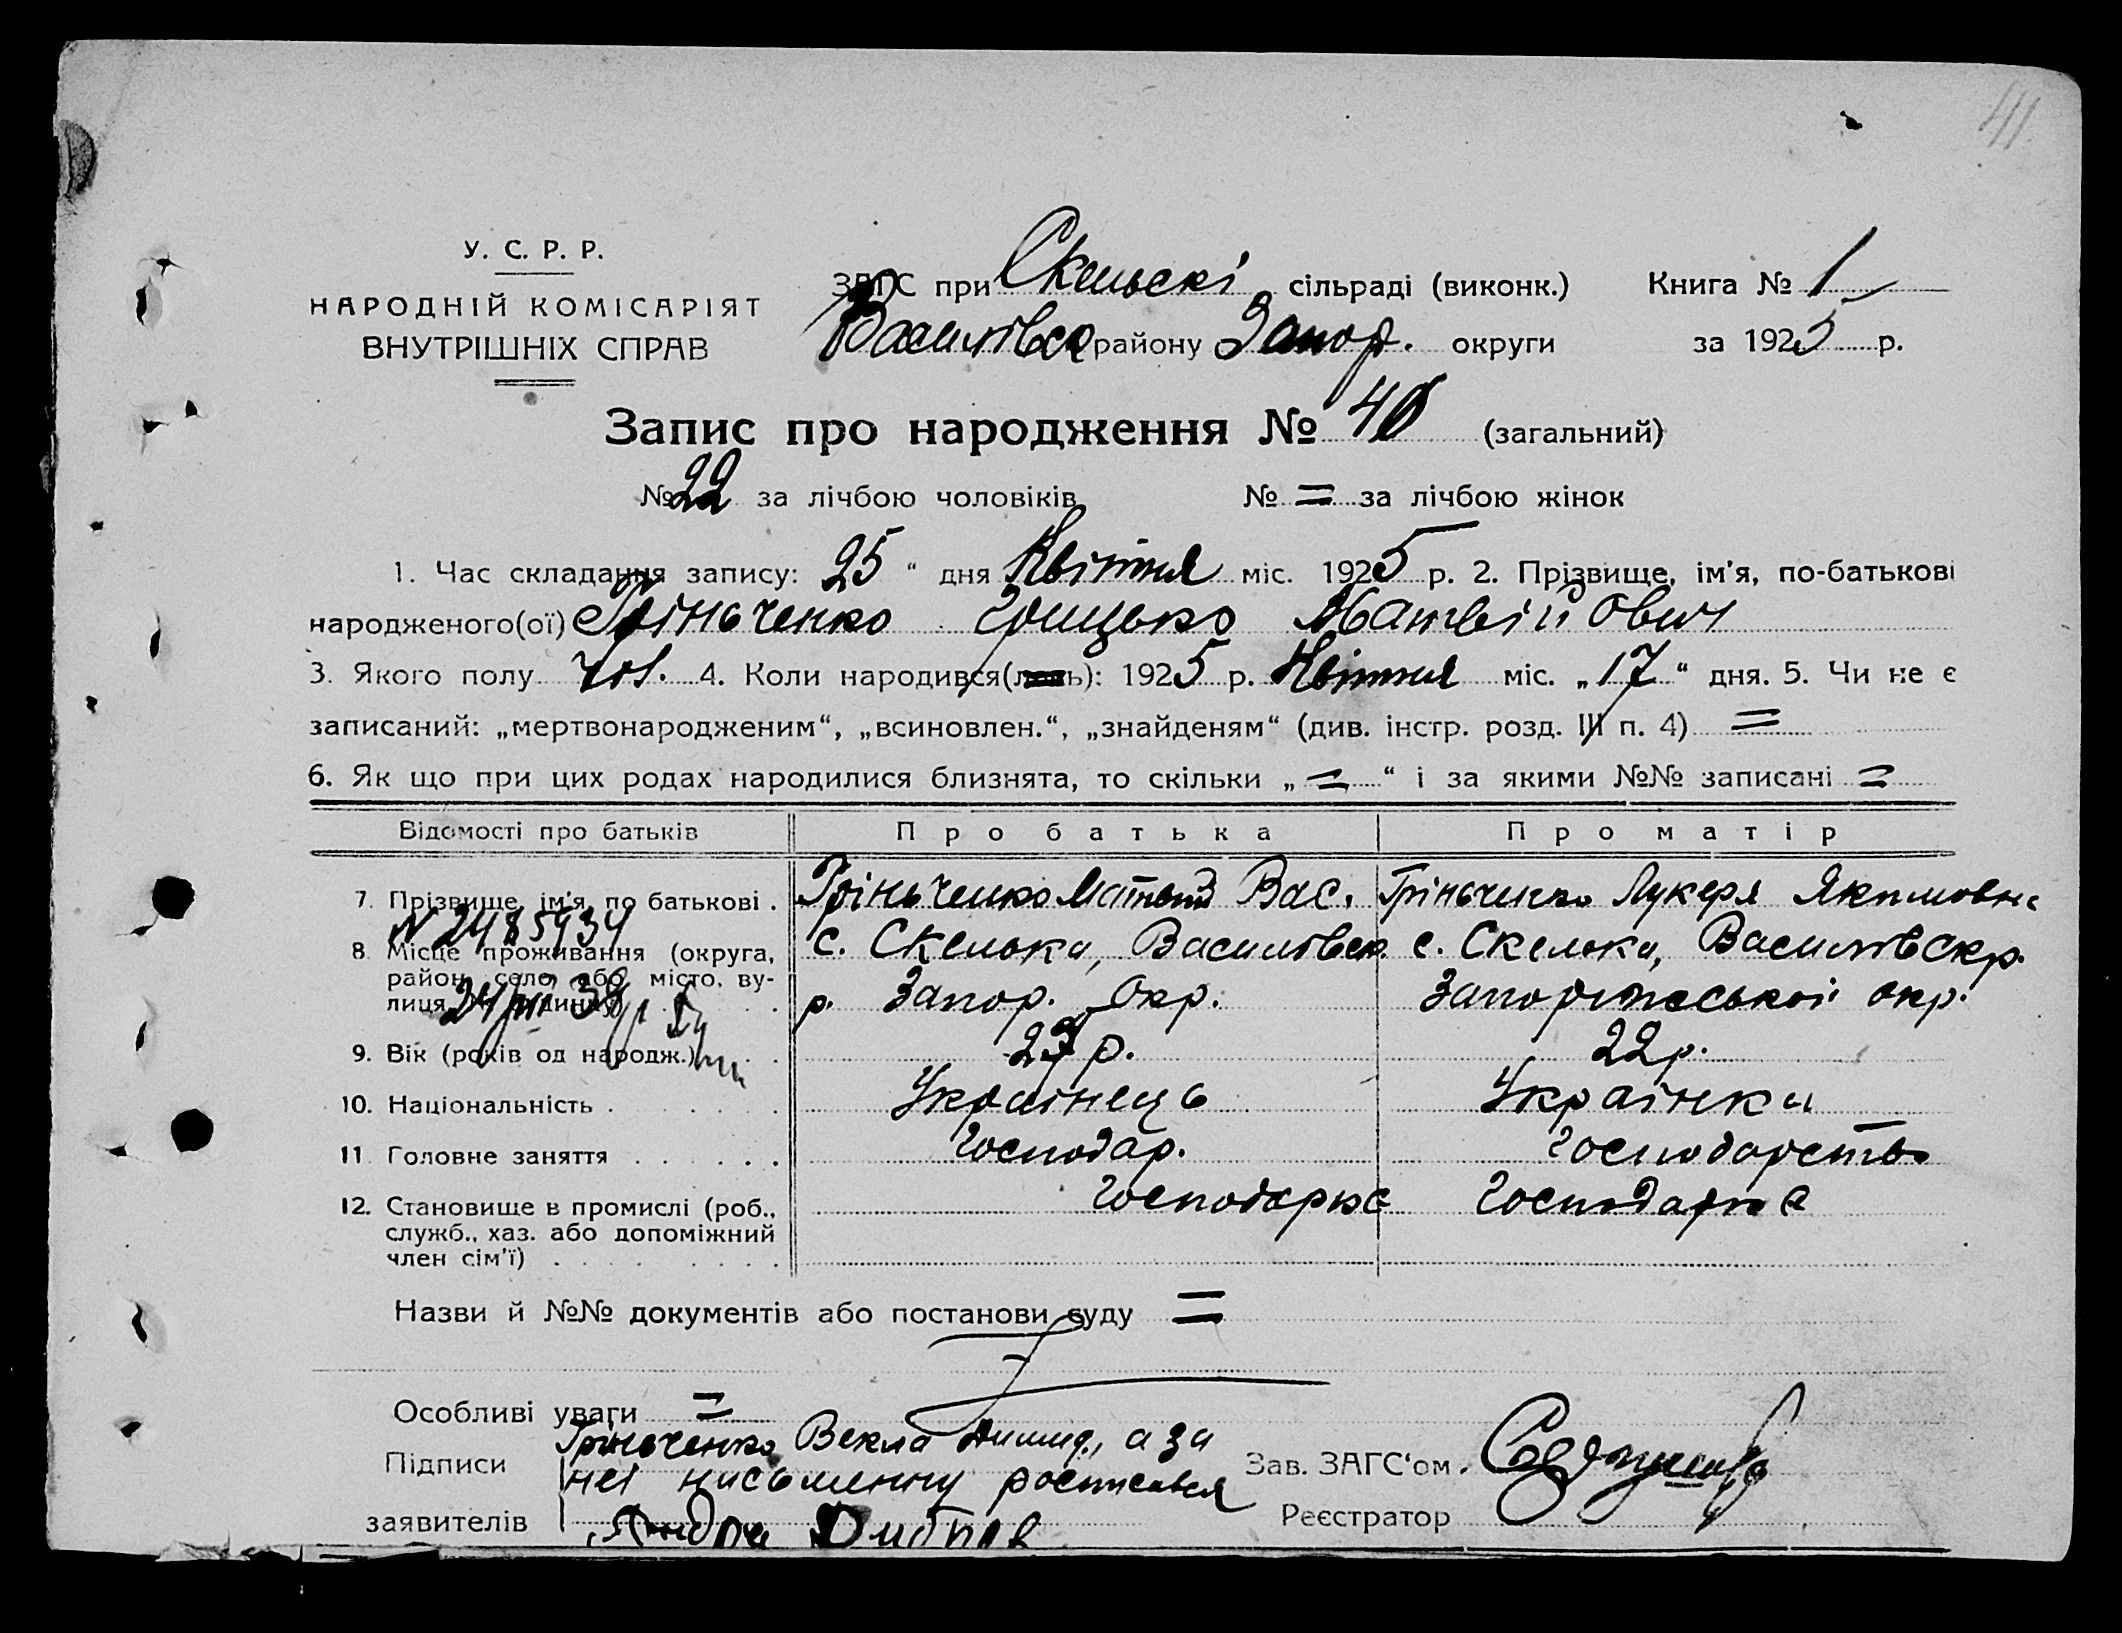 41
У. С. Р. Р.
НАРОДНІЙ КОМІСАРІЯТ
ВНУТРІШНІХ СПРАВ
ЗАГС при Скельскі сільраді (виконк.) Книга № 1
Василівск району Запор. округи за 1925 р.
Запис про народження № 40 (загальний)
№ 22 за лічбою чоловіків № = за лічбою жінок
1. Час складання запису: 25 “ дня Квітня міс. 1925 р. 2. Прізвище, ім’я, по-батькові
народженого(ої) Гріньченко Грицько Матвійович
3. Якого полу чол. 4. Коли народився(лась): 1925 р. Квітня міс. „17“ дня. 5. Чи не є
записаний: „мертвонародженим“, „всиновлен.“, „знайденям“ (див. інстр. розд. III п. 4) =
6. Як що при цих родах народилися близнята, то скільки „=“ і за якими №№ записані =
Відомості про батьків Про батька Про матір
7. Прізвище, ім’я, по батькові . Гріньченко Матвій Вас. Гріньченко Лукеря Якимовн
N 2485934
8. Місце проживання (округа, с. Скелька, Василівск. с. Скелька, Василівск р.
район, село або місто, вулиця р. Запор. Окр. Запоріжської окр.
9. Вік (років од народж.) р. 22 р.
10. Національність . Українець Українка
11. Головне заняття . Господар. Господарство
12. Становище в промислі (роб., Господарює Господарює
служб., хаз. або допоміжний
член сім’ї) .
Назви й №№ документів або постанови суду =
Особливі уваги =
Підписи Гріньченко Векла а за
неї письменну росписався
заявителів Андрій
Зав. ЗАГС‘ом
Реєстратор